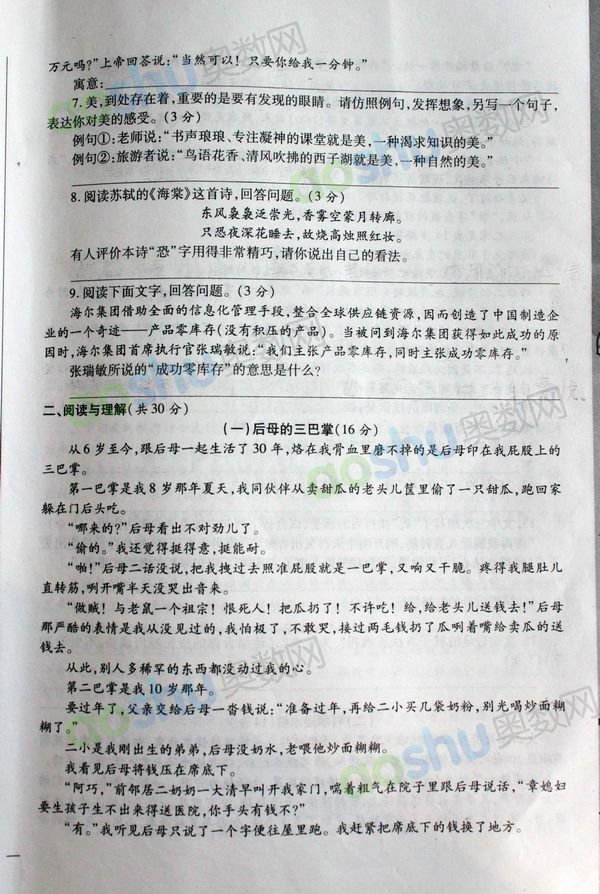 万元吗?”上帝回答说:“当然可以!只要你给我一分钟。”
寓意:
7.美,到处存在着,重要的是要有发现的眼睛。请仿照例句,发挥想象,另写一个句子,
表达你对美的感受。(3分)
例句①:老师说:“书声琅琅、专注凝神的课堂就是美,一种渴求知识的美。”
例句②:旅游者说:“鸟语花香、清风吹拂的西子湖就是美,一种自然的美。”
8.阅读苏轼的《海棠》这首诗,回答问题。(3分)
东风袅袅泛崇光,香雾空蒙月转廊。
只恐夜深花睡去,故烧高烛照红妆。
有人评价本诗“恐”字用得非常精巧,请你说出自己的看法。
9.阅读下面文字,回答问题。(3分)
海尔集团借助全面的信息化管理手段,整合全球供应链资源,因而创造了中国制造企
业的一个奇迹——产品零库存(没有积压的产品)。当被问到海尔集团获得如此成功的原
因时,海尔集团首席执行官张瑞敏说:“我们主张产品零库存,同时主张成功零库存。”
张瑞敏所说的“成功零库存”的意思是什么?
二、阅读与理解(共30分)
(一)后母的三巴掌(16分)
从6岁至今,跟后母一起生活了30年,烙在我骨血里磨不掉的是后母印在我屁股上的
三巴掌。
第一巴掌是我8岁那年夏天,我同伙伴从卖甜瓜的老头儿筐里偷了一只甜瓜,跑回家
躲在门后头吃。
“哪来的?”后母看出不对劲儿了。
“偷的。”我还觉得挺得意,挺能耐。
“啪!”后母二话没说,把我拽过去照准屁股就是一巴掌,又响又干脆。疼得我腿肚儿
直转筋,咧开嘴半天没哭出音来。
“做贼!与老鼠一个祖宗!恨死人!把瓜扔了!不许吃!给,给老头儿送钱去!”后母
那严酷的表情是我从没见过的,我怕极了,不敢哭,接过两毛钱扔了瓜咧着嘴给卖瓜的送
钱去。
从此,别人多稀罕的东西都没动过我的心。
第二巴掌是我10岁那年。
要过年了,父亲交给后母一沓钱说:“准备过年,再给二小买几袋奶粉,别光喝炒面糊
糊了。”
二小是我刚出生的弟弟,后母没奶水,老喂他炒面糊糊。
我看见后母将钱压在席底下。
“阿巧,”前邻居二奶奶一大清早叫开我家门,喘着粗气在院子里跟后母说话,“章媳妇
要生孩子生不出来得送医院,你手头有钱不?”
“有。”我听见后母只说了一个字便往屋里跑。我赶紧把席底下的钱换了地方。
goshu奥数网
goshu奥数网
goshu奥数网
goshu奥数网